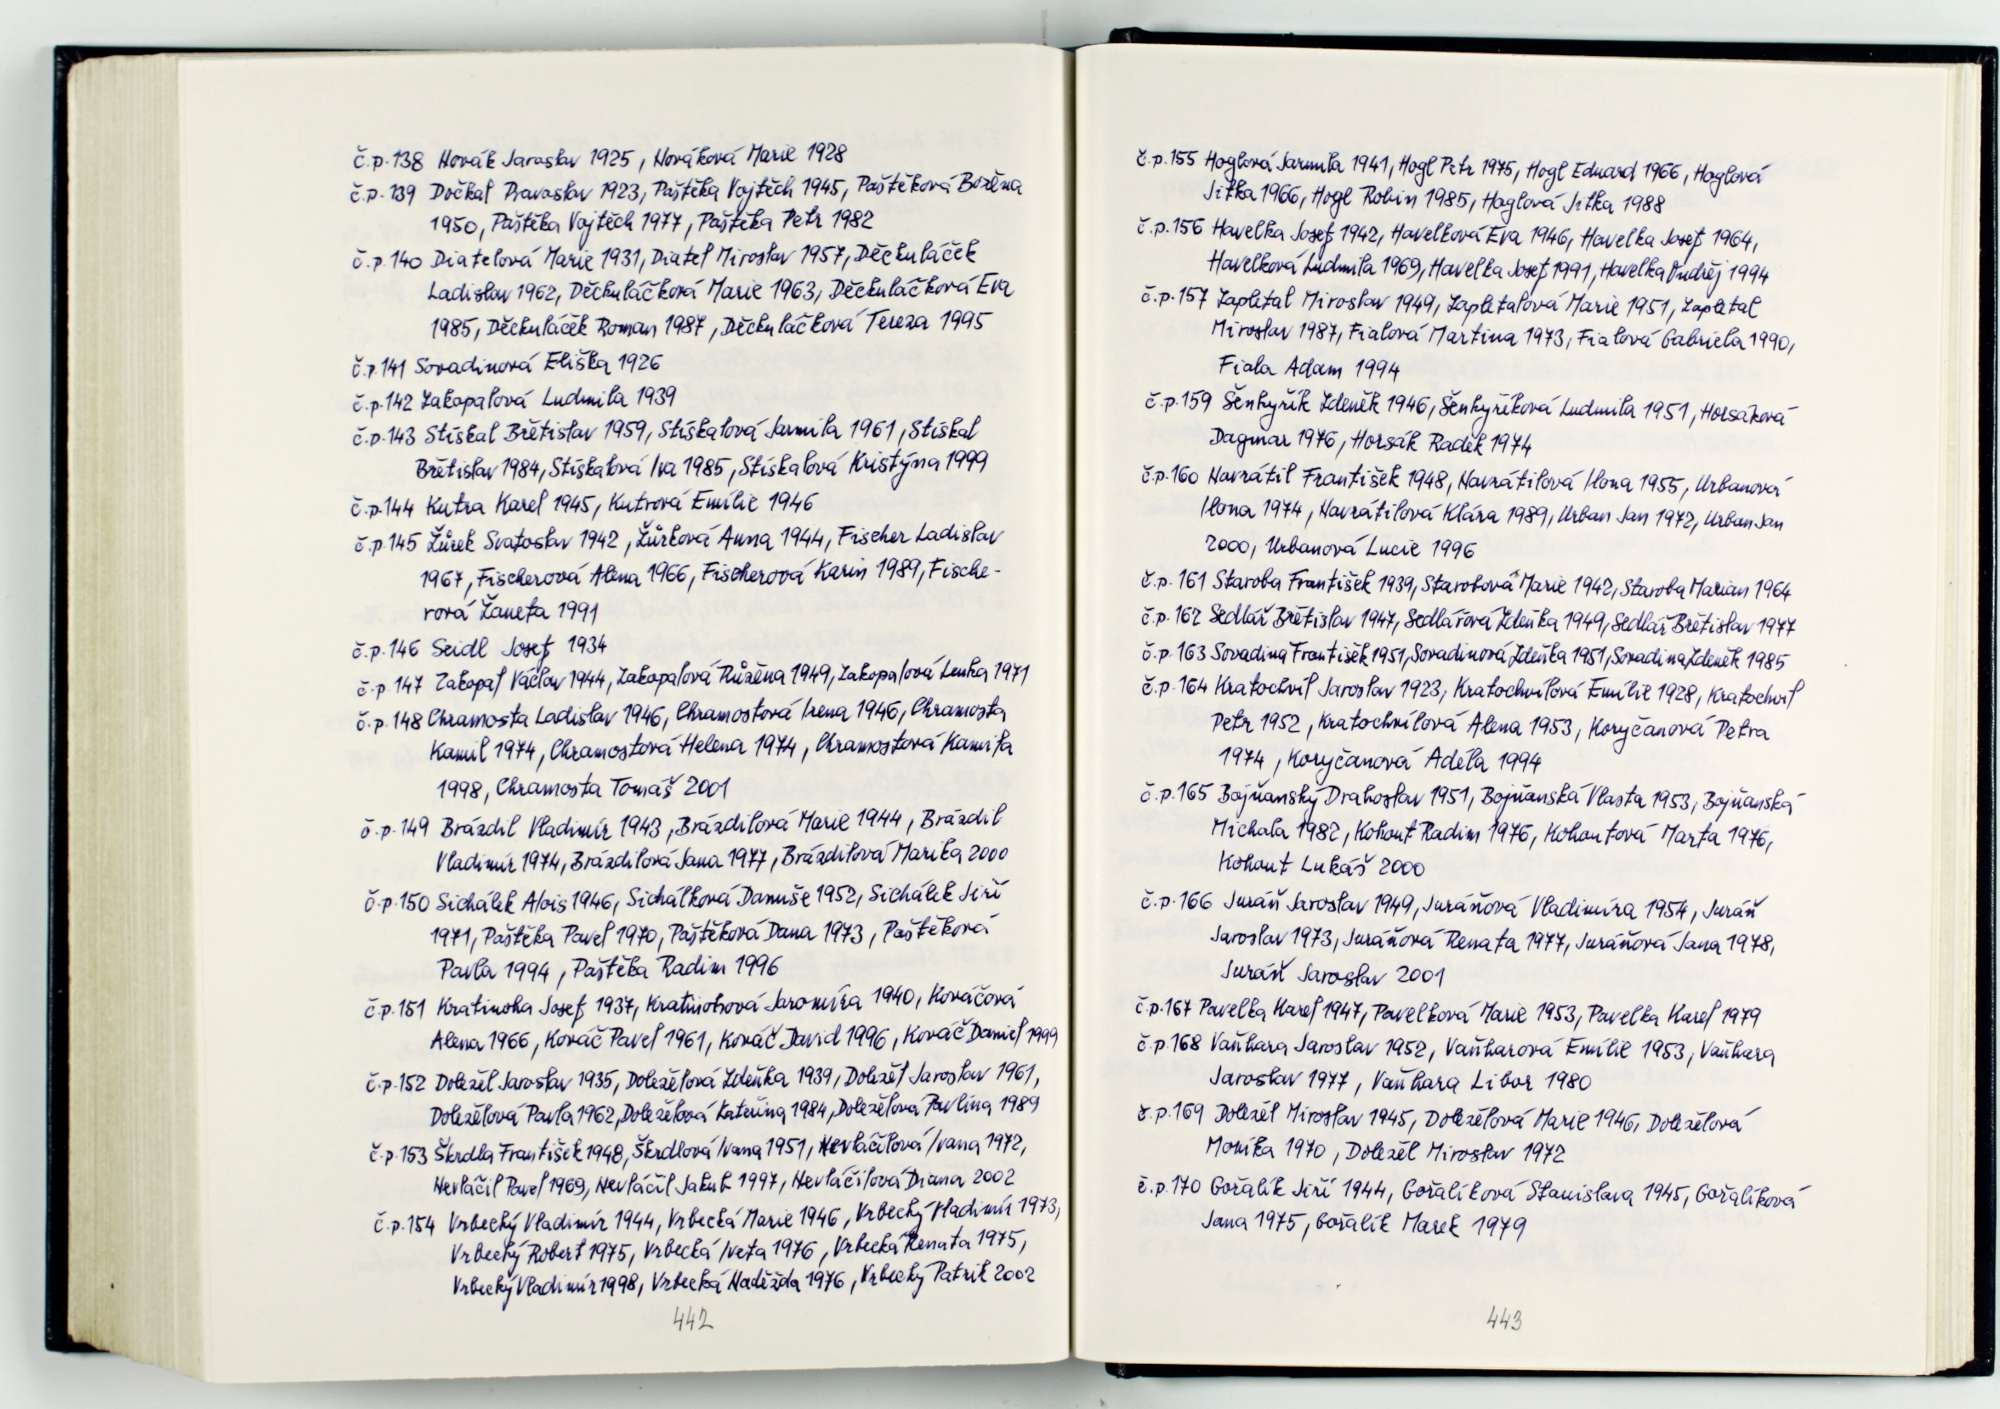 č.p.138 Novák Jaroslav 1925, Nováková Marie 1928
č.p.139 Dočkal Pravoslav 1923, Paštěka Vojtěch 1945, Paštěková Božena
1950, Paštěka Vojtěch 1977, Paštěka Petr 1982
č.p.140 Diatelová Marie 1931, Diatel Miroslav 1957, Děckuláček
Ladislav 1962, Děckuláčková Marie 1963, Děckuláčková Eva
1985, Děckuláček Roman 1987, Děckuláčková Tereza 1995
č.p.141 Sovadinová Eliška 1926
č.p.142 Zakopalová Ludmila 1939
č.p.143 Stískal Břetislav 1959, Stískalová Jarmila 1961, Stískal
Břetislav 1984, Stískalová Iva 1985, Stískalová Kristýna 1999
č.p.144 Kutra Karel 1945, Kutrová Emílie 1946
č.p.145 Žůrek Svatoslav 1942, Žůrková Anna 1944, Fischer Ladislav
1967, Fischerová Alena 1966, Fischerová Karin 1989, Fische-
rová Žaneta 1991
č.p.146 Seidl Josef 1934
č.p.147 Zakopal Václav 1944, Zakopalová Růžena 1949, Zakopalová Lenka 1971
č.p.148 Chramosta Ladislav 1946, Chramostová Irena 1946, Chramosta
Kamil 1974, Chramostová Helena 1974, Chramostová Kamila
1998, Chramosta Tomáš 2001
č.p.149 Brázdil Vladimír 1943, Brázdilová Marie 1944, Brázdil
Vladimír 1974, Brázdilová Jana 1977, Brázdilová Marika 2000
č.p.150 Sichálek Alois 1946, Sichálková Danuše 1952, Sichálek Jiří
1971, Paštěka Pavel 1970, Paštěková Dana 1973, Paštěková
Pavla 1994, Paštěka Radim 1996
č.p.151 Kratinoha Josef 1937, Jaromíra 1940, Kováčová
Alena 1966, Kováč Pavel 1961, Kováč David 1996, Kováč Daniel 1999
č.p.152 Doležel Jaroslav 1935, Doležělová Zdeňka 1939, Doležěl Jaroslav 1961,
Doležělová Pavla 1962, Doležělová Kateřina 1984, Doležělová Pavlína 1989
č.p.153 Škrdla František 1948, Škrdlová Ivana 1951, Nevláčilová Ivana 1972,
Nevláčil Pavel 1969, Nevláčil Jakub 1997, Nevláčilová Diana 2002
č.p.154 Vrbecký Vladimír 1944, Vrbecká Marie 1946, Vrbecký Vladimír 1973,
Vrbecký Robert 1975, Vrbecká Iveta 1976, Vrbecká Renata 1975,
Vrbecký Vladimír 1998, Vrbecká Naděžda 1976, Vrbecký Patrik 2002
442
č.p.155 Hoglová Jarmila 1941, Hogl Petr 1975, Hogl Eduard 1966, Hoglová
Jitka 1966, Hogl Robin 1985, Hoglová Jitka 1988
č.p.156 Havelka Josef 1942, Havelková Eva 1946, Havelka Josef 1964,
Havelková Ludmila 1969, Havelka Josef 1991, Havelka Ondřej 1994
č.p.157 Zapletal Miroslav 1949, Zapletalová Marie 1951, Zapletal
Miroslav 1987, Fialová Martina 1973, Fialová Gabriela 1990,
Fiala Adam 1994
č.p.159 Šenkyřík Zdeněk 1946, Šenkyříková Ludmila 1951, Horsáková
Dagmar 1976, Horsák Radek 1974
č.p.160 Navrátil František 1948, Navrátilová Ilona 1955, Urbanová
Ilona 1974, Navrátilová Klára 1989, Urban Jan 1972, Urban Jan
2000, Urbanová Lucie 1996
č.p.161 Staroba František 1939, Starobová Marie 1942, Staroba Marian 1964
č.p.162 Sedlář Břetislav 1947, Sedlářová Zdeňka 1949, Sedlář Břetislav 1977
č.p.163 Sovadina František 1951, Sovadinová Zdeňka 1951, Sovadina Zdeněk 1985
č.p.164 Kratochvíl Jaroslav 1923, Kratochvílová Emílie 1928, Kratochvíl
Petr 1952, Kratochvílová Alena 1953, Koryčanová Petra
1974, Koryčanová Adéla 1994
č.p.165 Bojňanský Drahoslav 1951, Bojňanská Vlasta 1953, Bojňanská
Michala 1982, Kohout Radim 1976, Kohoutová Marta 1976,
Kohout Lukáš 2000
č.p.166 Juráň Jaroslav 1949, Juráňová Vladimíra 1954, Juráň
Jaroslav 1973, Juráňová Renata 1977, Juráňová Jana 1978,
Juráň Jaroslav 2001
č.p.167 Pavelka Karel 1947, Pavelková Marie 1953, Pavelka Karel 1979
č.p.168 Vaňhara Jaroslav 1952, Vaňharová Emílie 1953, Vaňhara
Jaroslav 1977, Vaňhara Libor 1980
č.p.169 Doležěl Miroslav 1945, Doležělová Marie 1946, Doležělová
Monika 1970, Doležěl Miroslav 1972
č.p.170 Gořalík Jiří 1944, Gořalíková Stanislava 1945, Gořalíková
Jana 1975, Gořalík Marek 1979
443